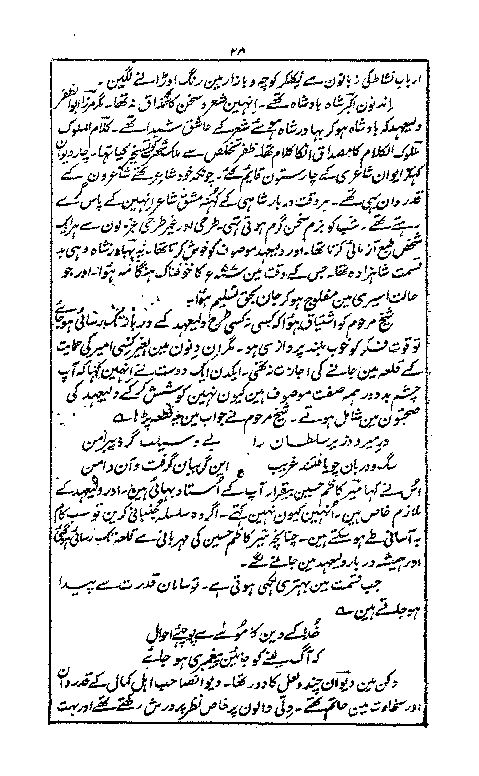 ۲۸
ارباب نشاط کی زبانون سے نکلکر کوچہ و بازار مین رنگ اوڑانے لگین ۔
اِن دنون اکبر شاہ بادشاہ تھے ۔ انہین شعر و سخن کا مذاق نہ تھا ۔ مگر مرزا ابو ظفر
ولیعہد کہ بادشاہ ہو کر بہادر شاہ ہوئے شعر کے عاشق شیدا تھے ۔ کلام الملوک
ملوک الکلام کا مصداق انکا کلام تھا ۔ ظفر تخلص سے ملک شہرت کو تسخیر کیا تھا ۔ چار دیوان
کہکر ایوان شاعری کے چار ستون قائم کئے ۔ چونکہ خود شاعر تھے شاعرون کے
قدردان بھی تھے ۔ ہر وقت دربار شاہی کے کہنہ مشق شاعر انہین کے پاس گہرے
رہتے تھے ۔ شب کو بزم سخن گرم ہوتی تہی ۔ طرحی اور غیر طرحی غزلون سے ہر ایک
شخص طبع آزمائی کرتا تھا ۔ اور ولیعہد موصوف کو خوش کرتا تھا ۔ یہ بہادر شاہ وہی بد
قسمت شاہزادہ تھا ۔ جس کے وقت مین کا خوفناک ہنگامہ ہوا ۔ اور جو
حالت اسیری مین مفلوج ہو کر جان بحق تسلیم ہوا ۔
شیخ مرحوم کو اشتیاق ہوا کہ کسی نہ کسی طرح ولیعہد کے دربار تک رسائی ہو جائے
تو قوت فکر کو خوب بلند پروازی ہو ۔ مگر ان دنون مین بغیر کسی امیر کی حمایت
کے قلعہ مین جانے کی اجازت نہ تھی ۔ ایکدن ایک دوست نے انہین کہا کہ آپ
چشم بد دور ہمہ صفت موصوف ہین کیون نہین کوشش کر کے ولیعہد کی
صحبتون مین شامل ہوتے ۔ شیخ مرحوم نے جواب مین جو قطعہ پڑھا ؎
در میر و وزیر سلطان را بے وسیلت مگرد پیرامن
سگ و دربان چو یافتند غریب این گریبان گرفت و آن دامن
اُس نے کہا میر کاظم حسین بیقرار آپ کے اُستاد بھائی ہین ۔ اور ولیعہد کے
ملازم خاص ہین ۔ اُنہین کیون نہین کہتے ۔ اگر وہ سلسلہ جنبانی کرین تو سب کام
بہ آسانی طے ہو سکتے ہین ۔ چنانچہ میر کاظم حسین کی مہربانی سے قلعہ تک رسائی ہو گئی
اور ہمیشہ دربار ولیعہد مین جانے لگے ۔
جب قسمت مین بہتری لکھی ہوتی ہے ۔ تو سامان قدرت سے پیدا
ہو جاتے ہین ؎
خدا کے دین کا موسے سے پوچھئے احوال
کہ آگ لینے کو جائین پیمبری ہو جائے
دکن مین دیوان چندو لعل کا دور تھا ۔ دیوان صاحب اہل کمال کے قدردان
اور سخاوت مین حاتم تھے ۔ دِلّی والون پر خاص نظر پرورش رکھتے تھے اور بہت